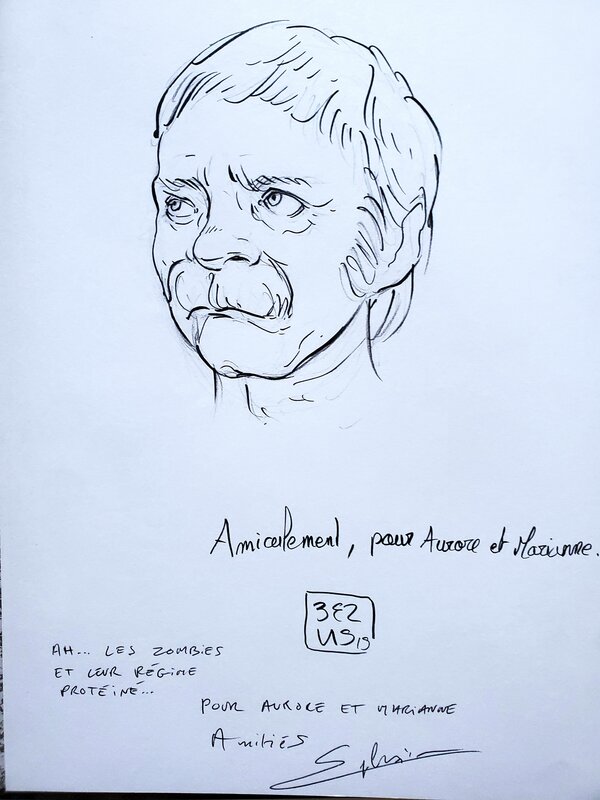 Amicalement, pour Aurore et Marianne.
BEZ
US 19
AH... LES ZOMBIES
ET LEUR RÉGIME
PROTÉINÉ...
POUR AURORE ET MARIANNE
Amitiés
Sylvain